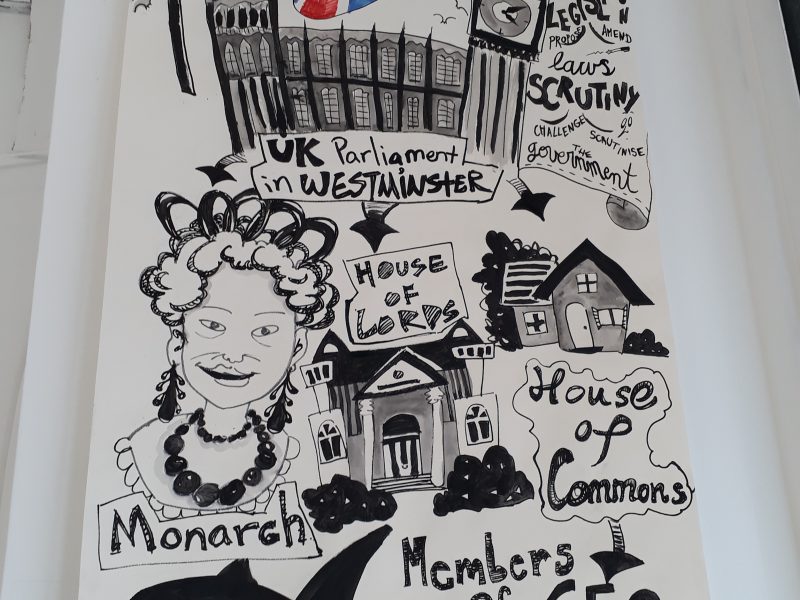 LEGISL N
PROPOSE AMEND
laws
SCRUTINY
CHALLENGE!
SCRUTINISE
THE
government
UK Parliament
in WESTMINSTER
HOUSE
OF
LORDS
House
of
Commons
Monarch
Members
of